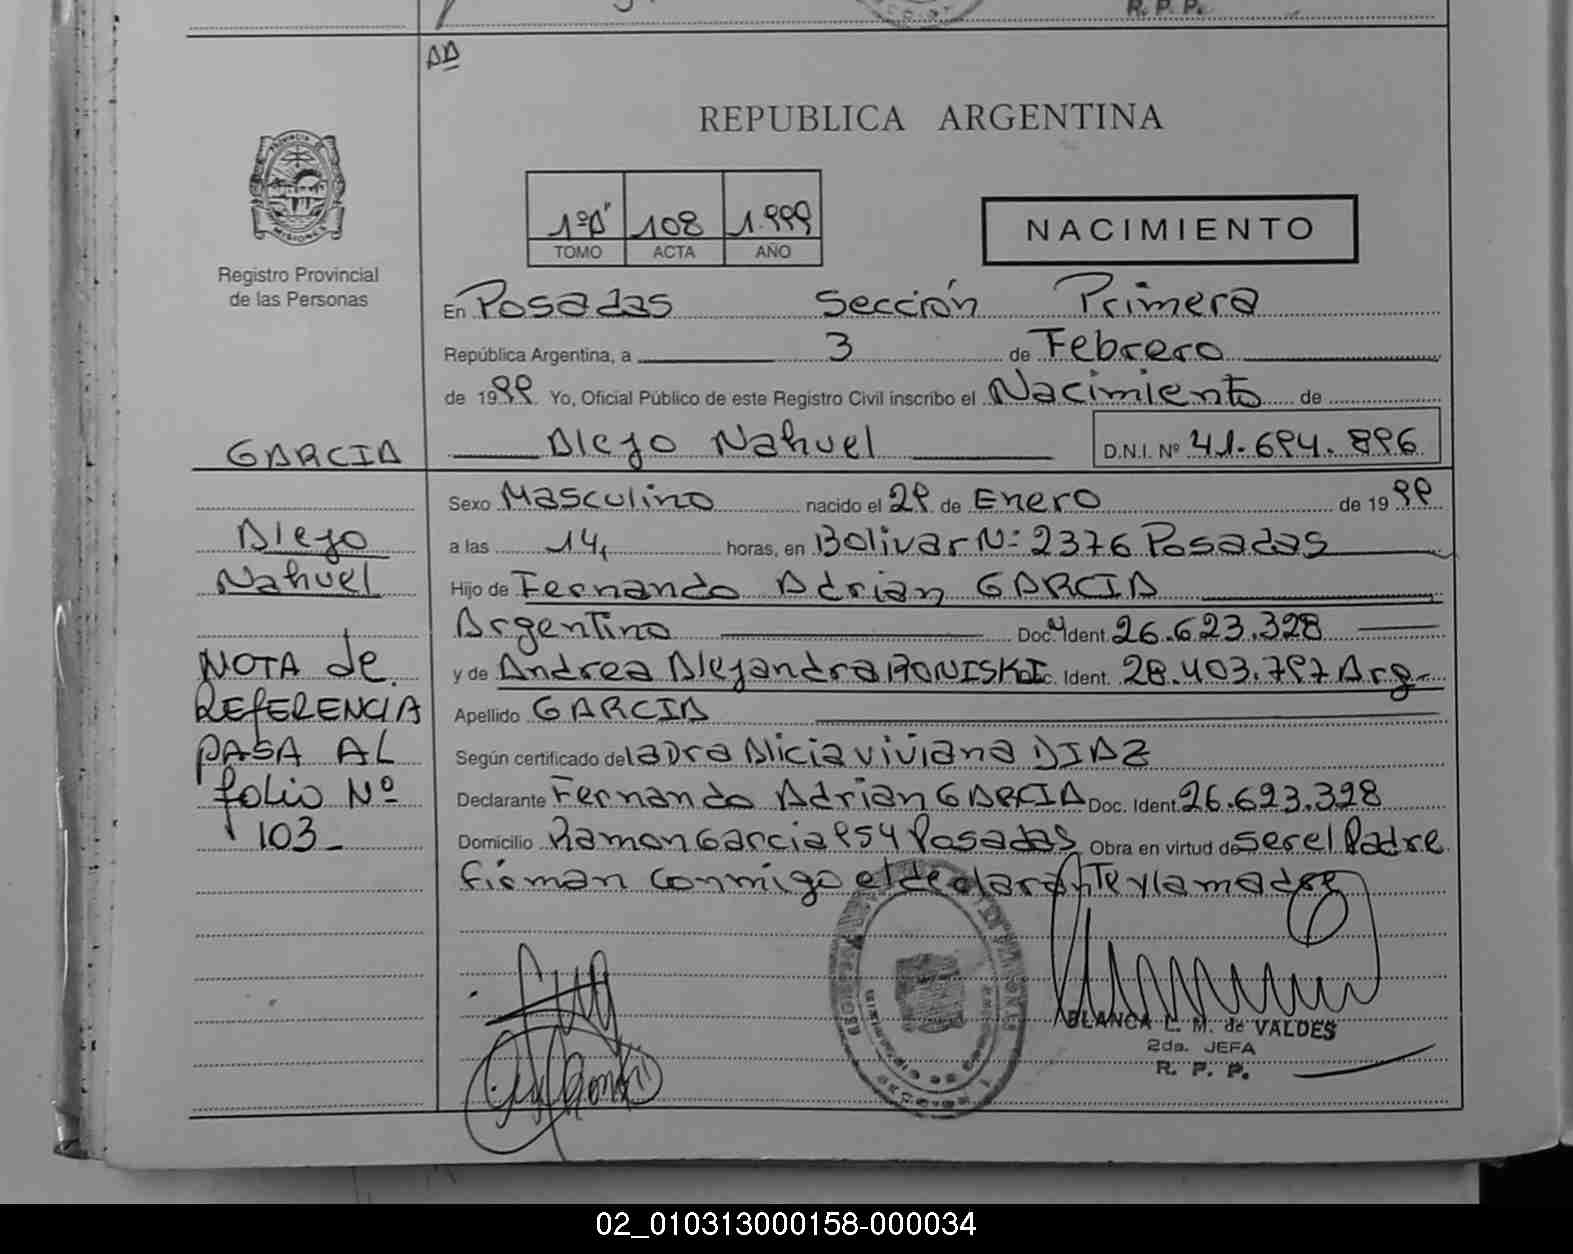 R. P. P.
AA
REPUBLICA ARGENTINA
PROVINCIA DE
MISIONES
Registro Provincial
de las Personas
1ºA" 108 1.999
TOMO ACTA AÑO
NACIMIENTO
En Posadas Sección Primera
República Argentina, a 3 de Febrero
de 1999 Yo, Oficial Público de este Registro Civil inscribo el Nacimiento de
GARCIA
Diego Nahuel D.N.I. Nº 41.694.896
Sexo Masculino nacido el 29 de Enero de 1999
a las 14, horas, en Bolivar Nº 2376 Posadas
Hijo de Fernando Adrian GARCIA
Argentino Doc. Ident. 26.623.328
y de Andrea Alejandra RONISKI Doc. Ident. 28.403.797 Arg.
Apellido GARCIA
Según certificado de la Dra Alicia Viviana DIAZ
Declarante Fernando Adrian GARCIA Doc. Ident. 26.623.328
Domicilio Ramon Garcia 954 Posadas Obra en virtud de ser el Padre
firman conmigo el declarante y la madre
Diego
Nahuel
NOTA de
REFERENCIA
PASA AL
folio Nº
103
BLANCA L. M. de VALDES
2da. JEFA
R. P. P.
02_010313000158-000034